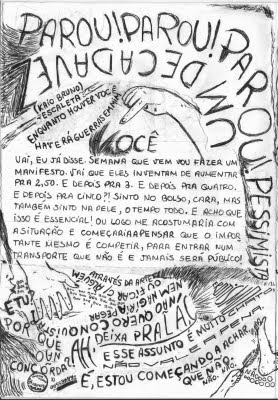 PAROU! PAROU! PAROU! PESSIMISTA
UM DE CADA VEZ
(KAIO BRUNO)
-ESCALETA-
ENQUANTO HOUVER VOCÊ
HAVERÁ GUERRAS
VOCÊ
UAÍ, EU JÁ DISSE. SEMANA QUE VEM VOU FAZER UM
MANIFESTO. JAÍ QUE ELES INVENTAM DE AUMENTAR
PRA 2,50. E DEPOIS PRA 3. E DEPOIS PRA QUATRO.
E DEPOIS PRA CINCO?! SINTO NO BOLSO, CARA, MAS
TAMBÉM SINTO NA PELE, O TEMPO TODO. E ACHO QUE
ISSO É ESSENCIAL! OU LOGO ME ACOSTUMARIA COM
A SITUAÇÃO E COMEÇARIA A PENSAR QUE O IMPOR
TANTE MESMO É COMPETIR, PARA ENTRAR NUM
TRANSPORTE QUE NÃO É E JAMAIS SERÁ PÚBLICO!
ATRAVÉS DA ARTE
NÃO QUERO
E TU!
POR QUE
NÃO
CONCORDA?
AH, DEIXA PRA LÁ!
ESSE ASSUNTO É MUITO
NÃO VALE A PENA.
É, ESTOU COMEÇANDO A ACHAR
QUE NÃO.
NÃO.
NÃO.